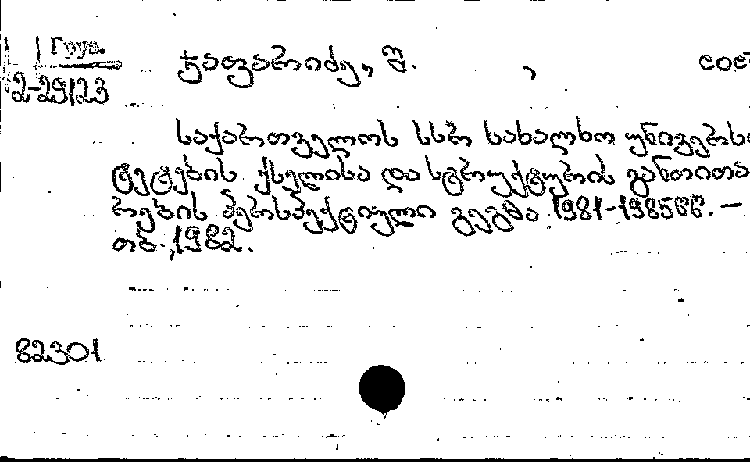 Груз.
2-29123
ჯაფარიძე, შ. , сос
საქართველოს სსრ სახალხო უნივერსი
ტეტების ქსელისა და სტრუქტურის განვითა
რების პერსპექტიული გეგმა 1981-1985წწ. —
თბ., 1982.
82301